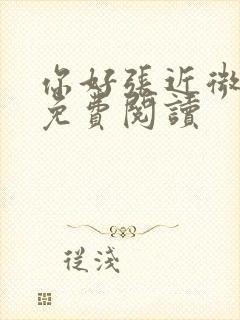 你好張近微
免費閱讀
從淺